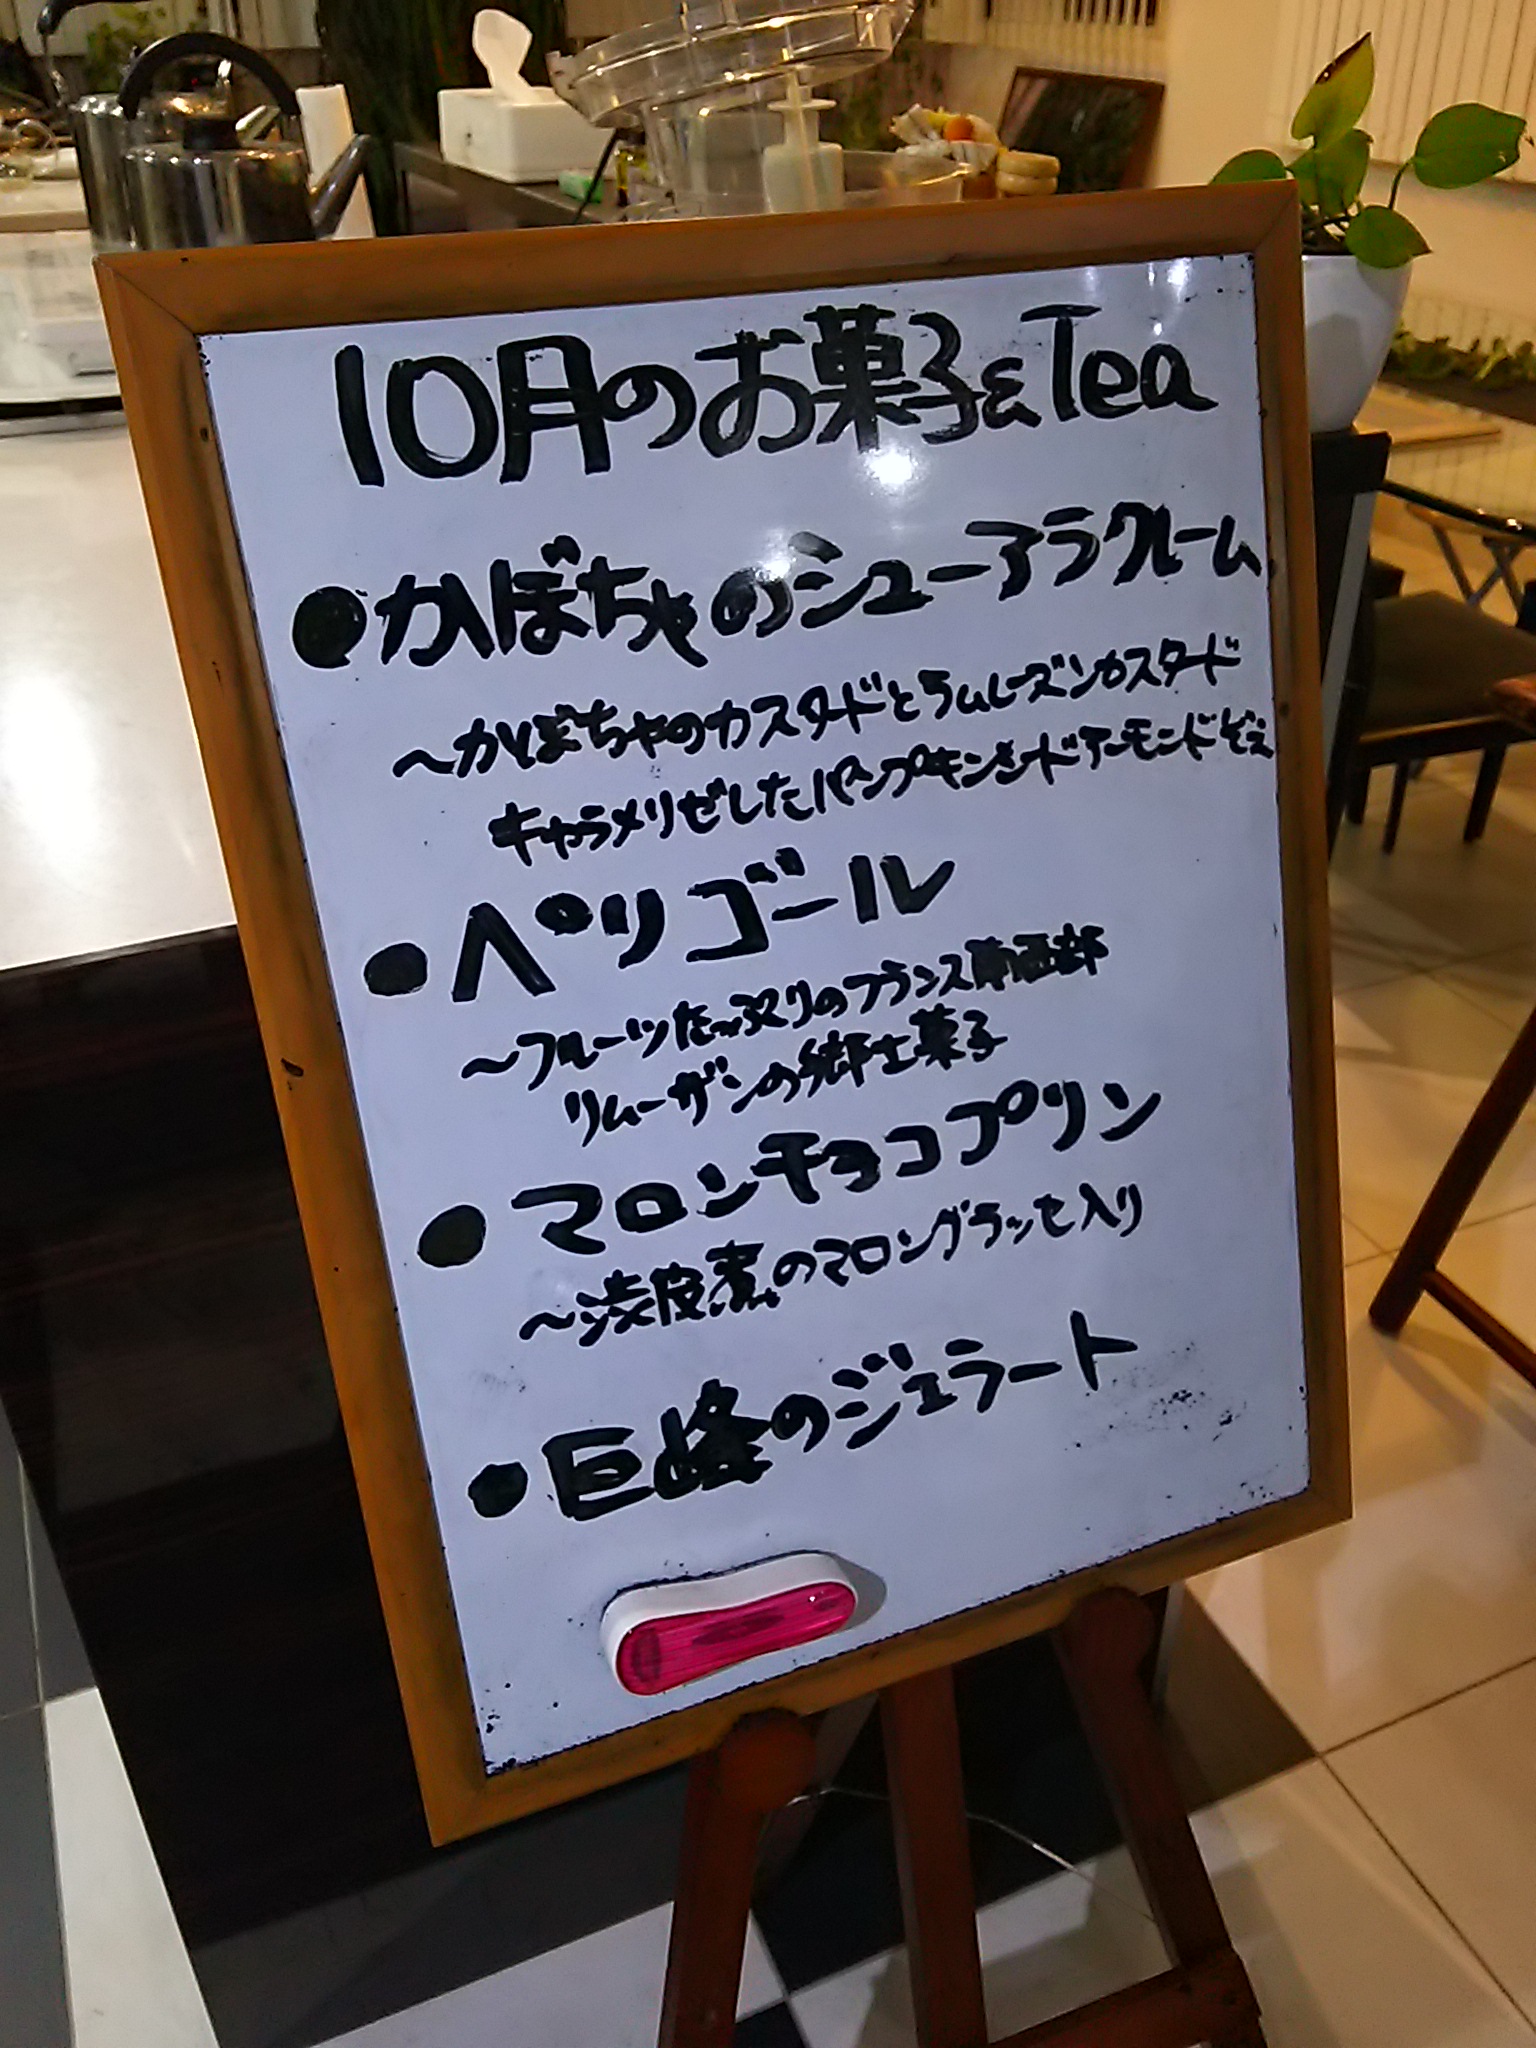 10月のお菓子&Tea
●かぼちゃのシューアラクレーム
～かぼちゃのカスタードとラムレーズンカスタード
キャラメリゼしたパンプキンシードアーモンドぞえ
●ペリゴール
～フルーツたっぷりのフランス南西部
リムーザンの郷土菓子
●マロンチョコプリン
～渋皮煮のマロングラッセ入り
●巨峰のジェラート